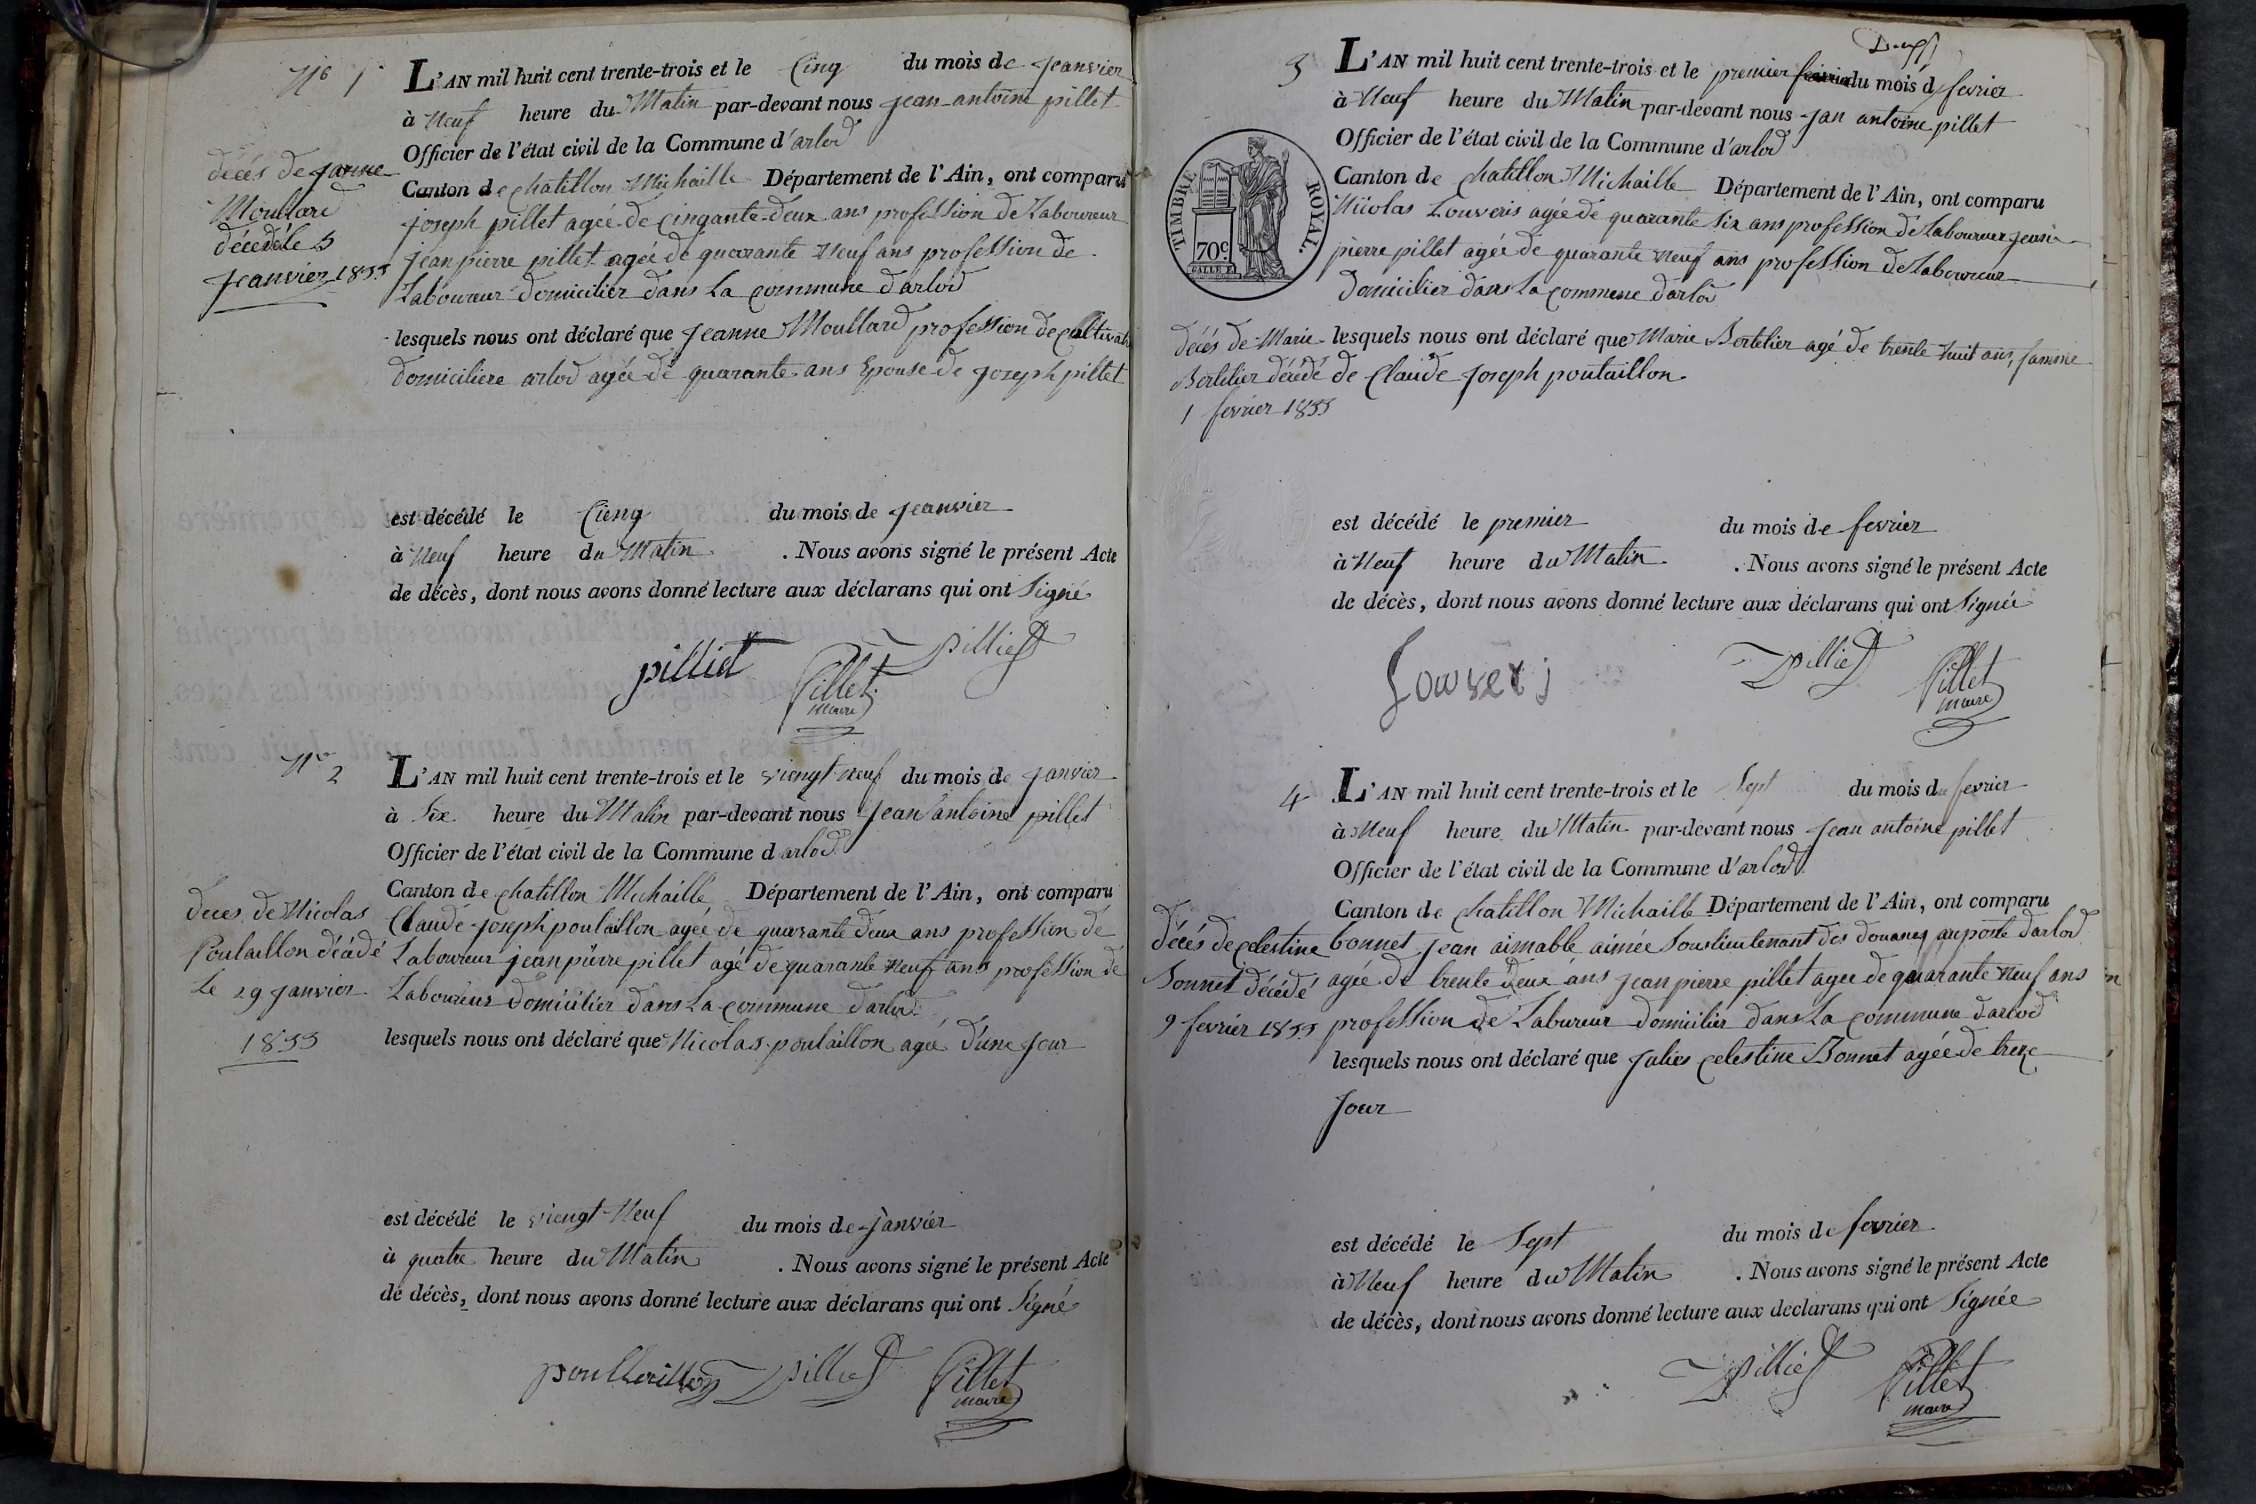 No 1
L'AN mil huit cent trente-trois et le Cinq du mois de jeanvier
à Neuf heure du Matin par-devant nous jean-antoine pillet
Officier de l'état civil de la Commune d'arlod
Canton de chatillon Michaille Département de l'Ain, ont comparu
joseph pillet agée de cinqante-deux ans profession de Laboureur
jean pierre pillet agée de quarante Neuf ans profession de
Laboureur Domicilier dans La commune d'arlod
lesquels nous ont déclaré que jeanne Moullard profession de cultivat
domiciliere arlod agée de quarante ans Epouse de joseph pillet
décés de janne
Moullard
décédé le 5
jeanvier 1833
est décédé le Cienq du mois de jeanvier
à Neuf heure du Matin . Nous avons signé le présent Acte
de décès, dont nous avons donné lecture aux déclarans qui ont Signé
pilliet Pillet pilliet
maire
No 2
L'AN mil huit cent trente-trois et le viengt neuf du mois de janvier
à Six heure du Matin par-devant nous jean antoine pillet
Officier de l'état civil de la Commune d arlod
Canton de chatillon Michaille Département de l'Ain, ont comparu
Claude joseph poulaillon agée de quarante deux ans profession de
Laboureur jean pierre pillet agé de quarante Neuf ans profession de
Laboureur Domicilier dans La commune d'arlod
lesquels nous ont déclaré que Nicolas poulaillon agée d'une jour
deces de Nicolas
Poulaillon décédé
Le 29 janvier
1833
est décédé le viengt-Neuf du mois de janvier
à quatre heure du Matin . Nous avons signé le présent Acte
de décès, dont nous avons donné lecture aux déclarans qui ont Signé
poullaillon pilliet Pillet
maire
3
L'AN mil huit cent trente-trois et le premier du mois d fevrier
à Neuf heure du Matin par-devant nous jan antoine pillet
Officier de l'état civil de la Commune d'arlod
Canton de chatillon Michaille Département de l'Ain, ont comparu
Nicolas Louveris agée de quarante six ans profession de Laboureur jean
pierre pillet agée de quarante neuf ans profession de Laboureur
Domicilier dans La commune d'arlod
TIMBRE ROYAL
70c
lesquels nous ont déclaré que Marie Bertelier agé de trente huit ans, famme
de Claude joseph poulaillon
décés de Marie
Bertelier décédé
1 fevrier 1833
est décédé le premier du mois de fevrier
à Neuf heure du Matin . Nous avons signé le présent Acte
de décès, dont nous avons donné lecture aux déclarans qui ont Signée
Pilliet Pillet
maire
4
L'AN mil huit cent trente-trois et le Sept du mois de fevrier
à Neuf heure du Matin par-devant nous jean antoine pillet
Officier de l'état civil de la Commune d'arlod
Canton de chatillon Michaille Département de l'Ain, ont comparu
bonnet jean aimable aimée Souslieutenant des douanes au poste d'arlod
agée de trente deux ans jean pierre pillet agee de quarante Neuf ans
profession de Labureur Domicilier dans La commune d'arlod
lesquels nous ont déclaré que julies celestine Bonnet agée de treze
jour
décés de celestine
Bonnet décédé
9 fevrier 1833
est décédé le Sept du mois de fevrier
à Neuf heure du Matin . Nous avons signé le présent Acte
de décès, dont nous avons donné lecture aux déclarans qui ont Signée
Pilliet Pillet
maire